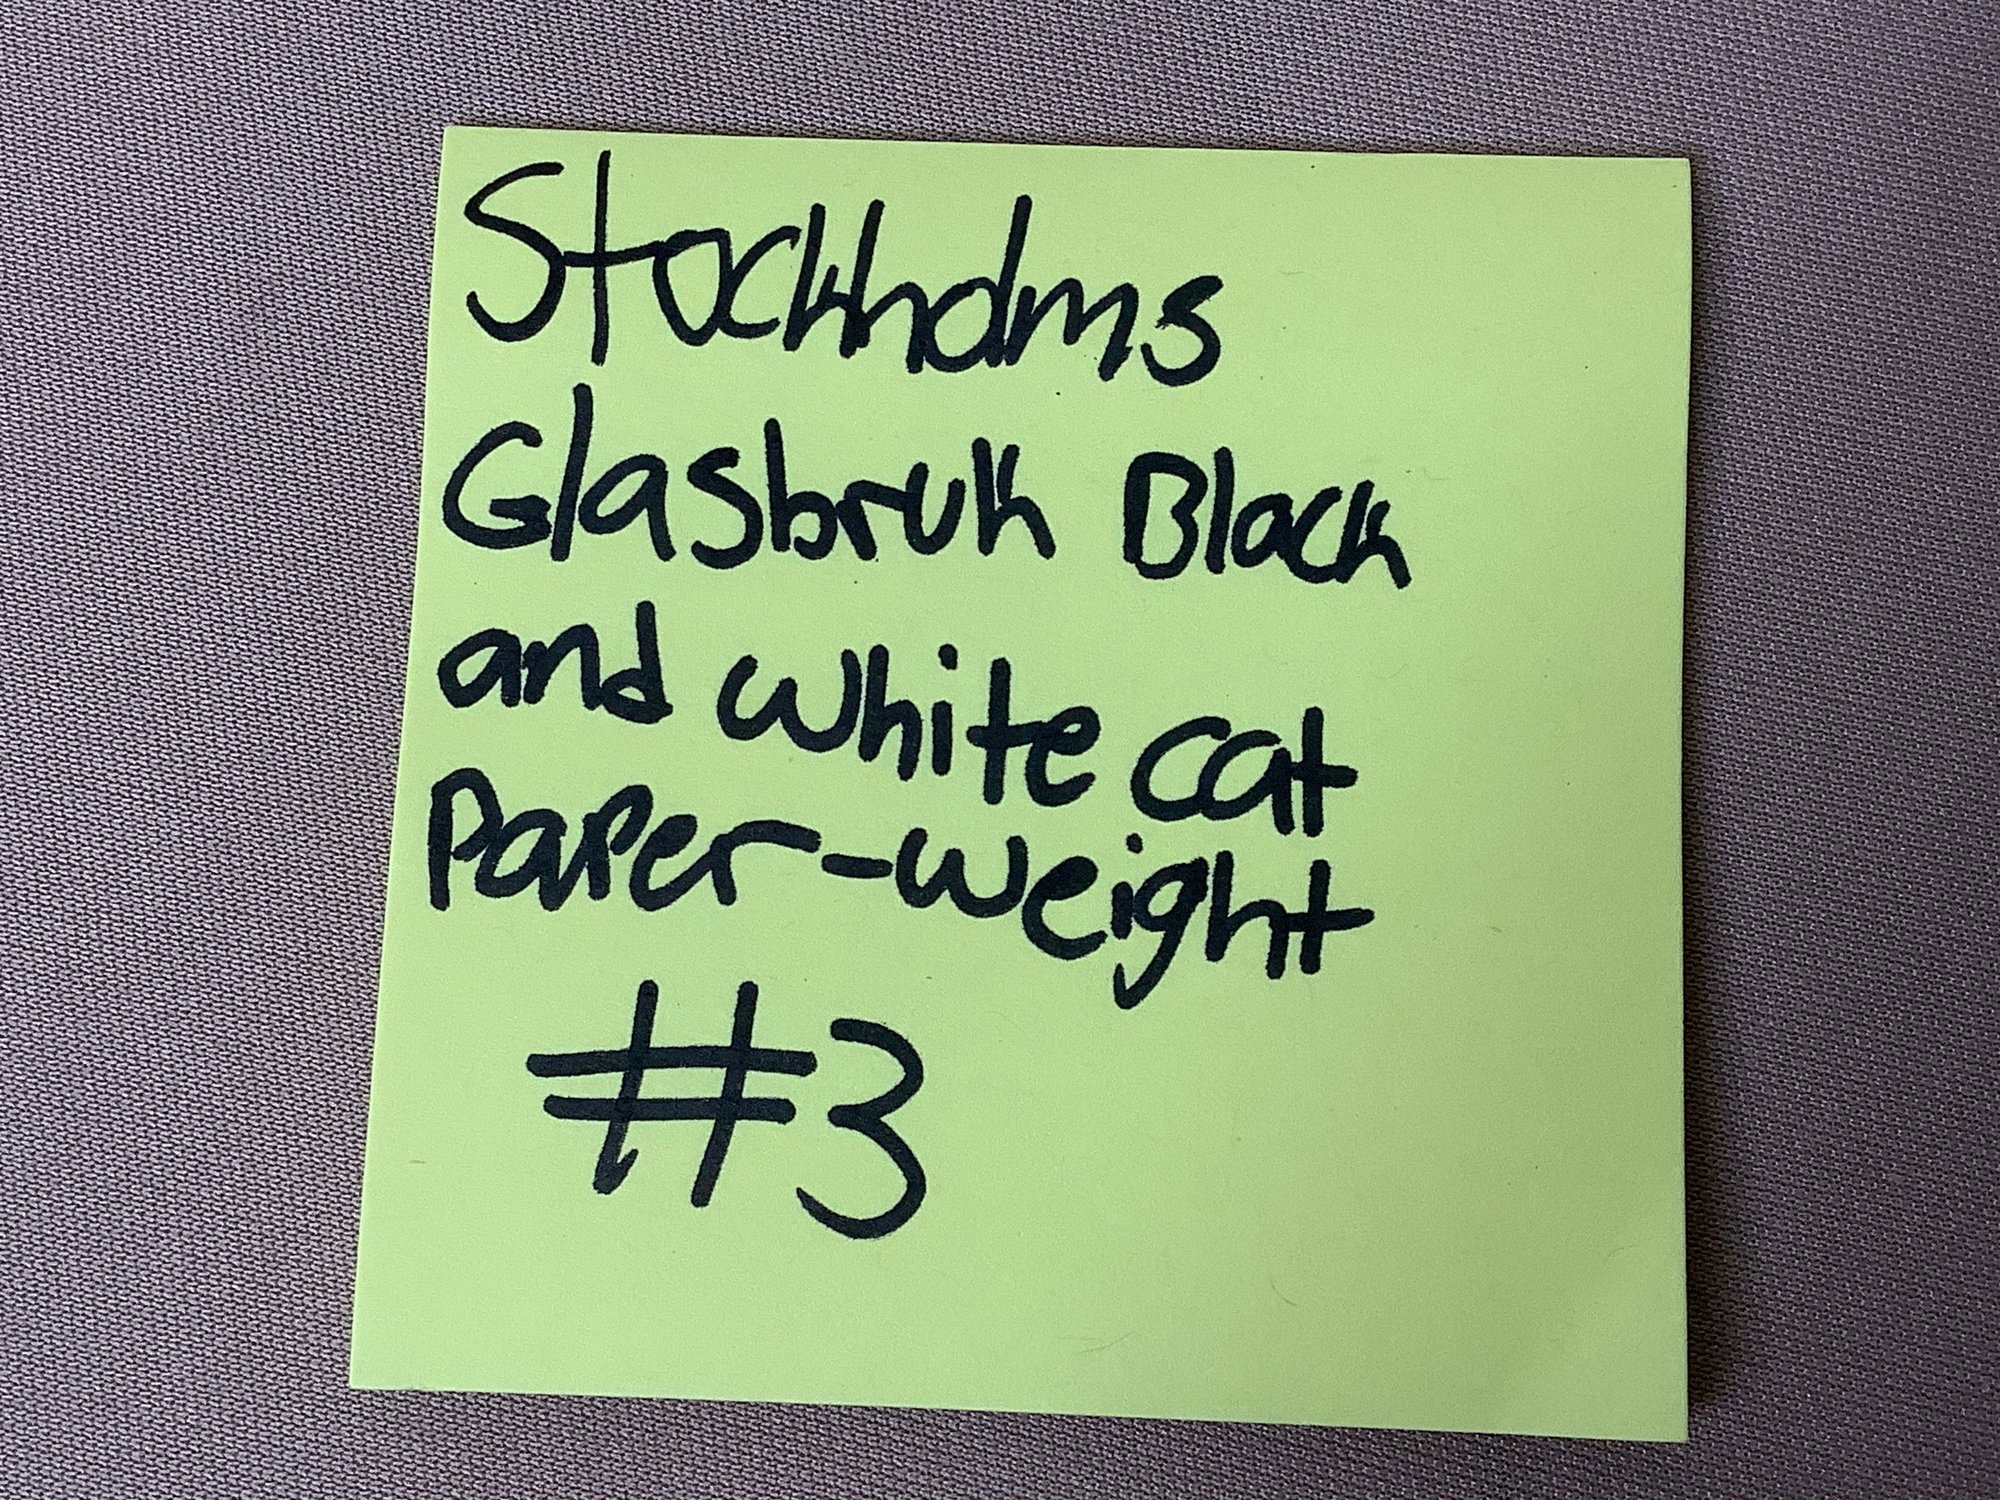 Stockholms
Glasbruk Black
and white cat
Paper-weight
#3